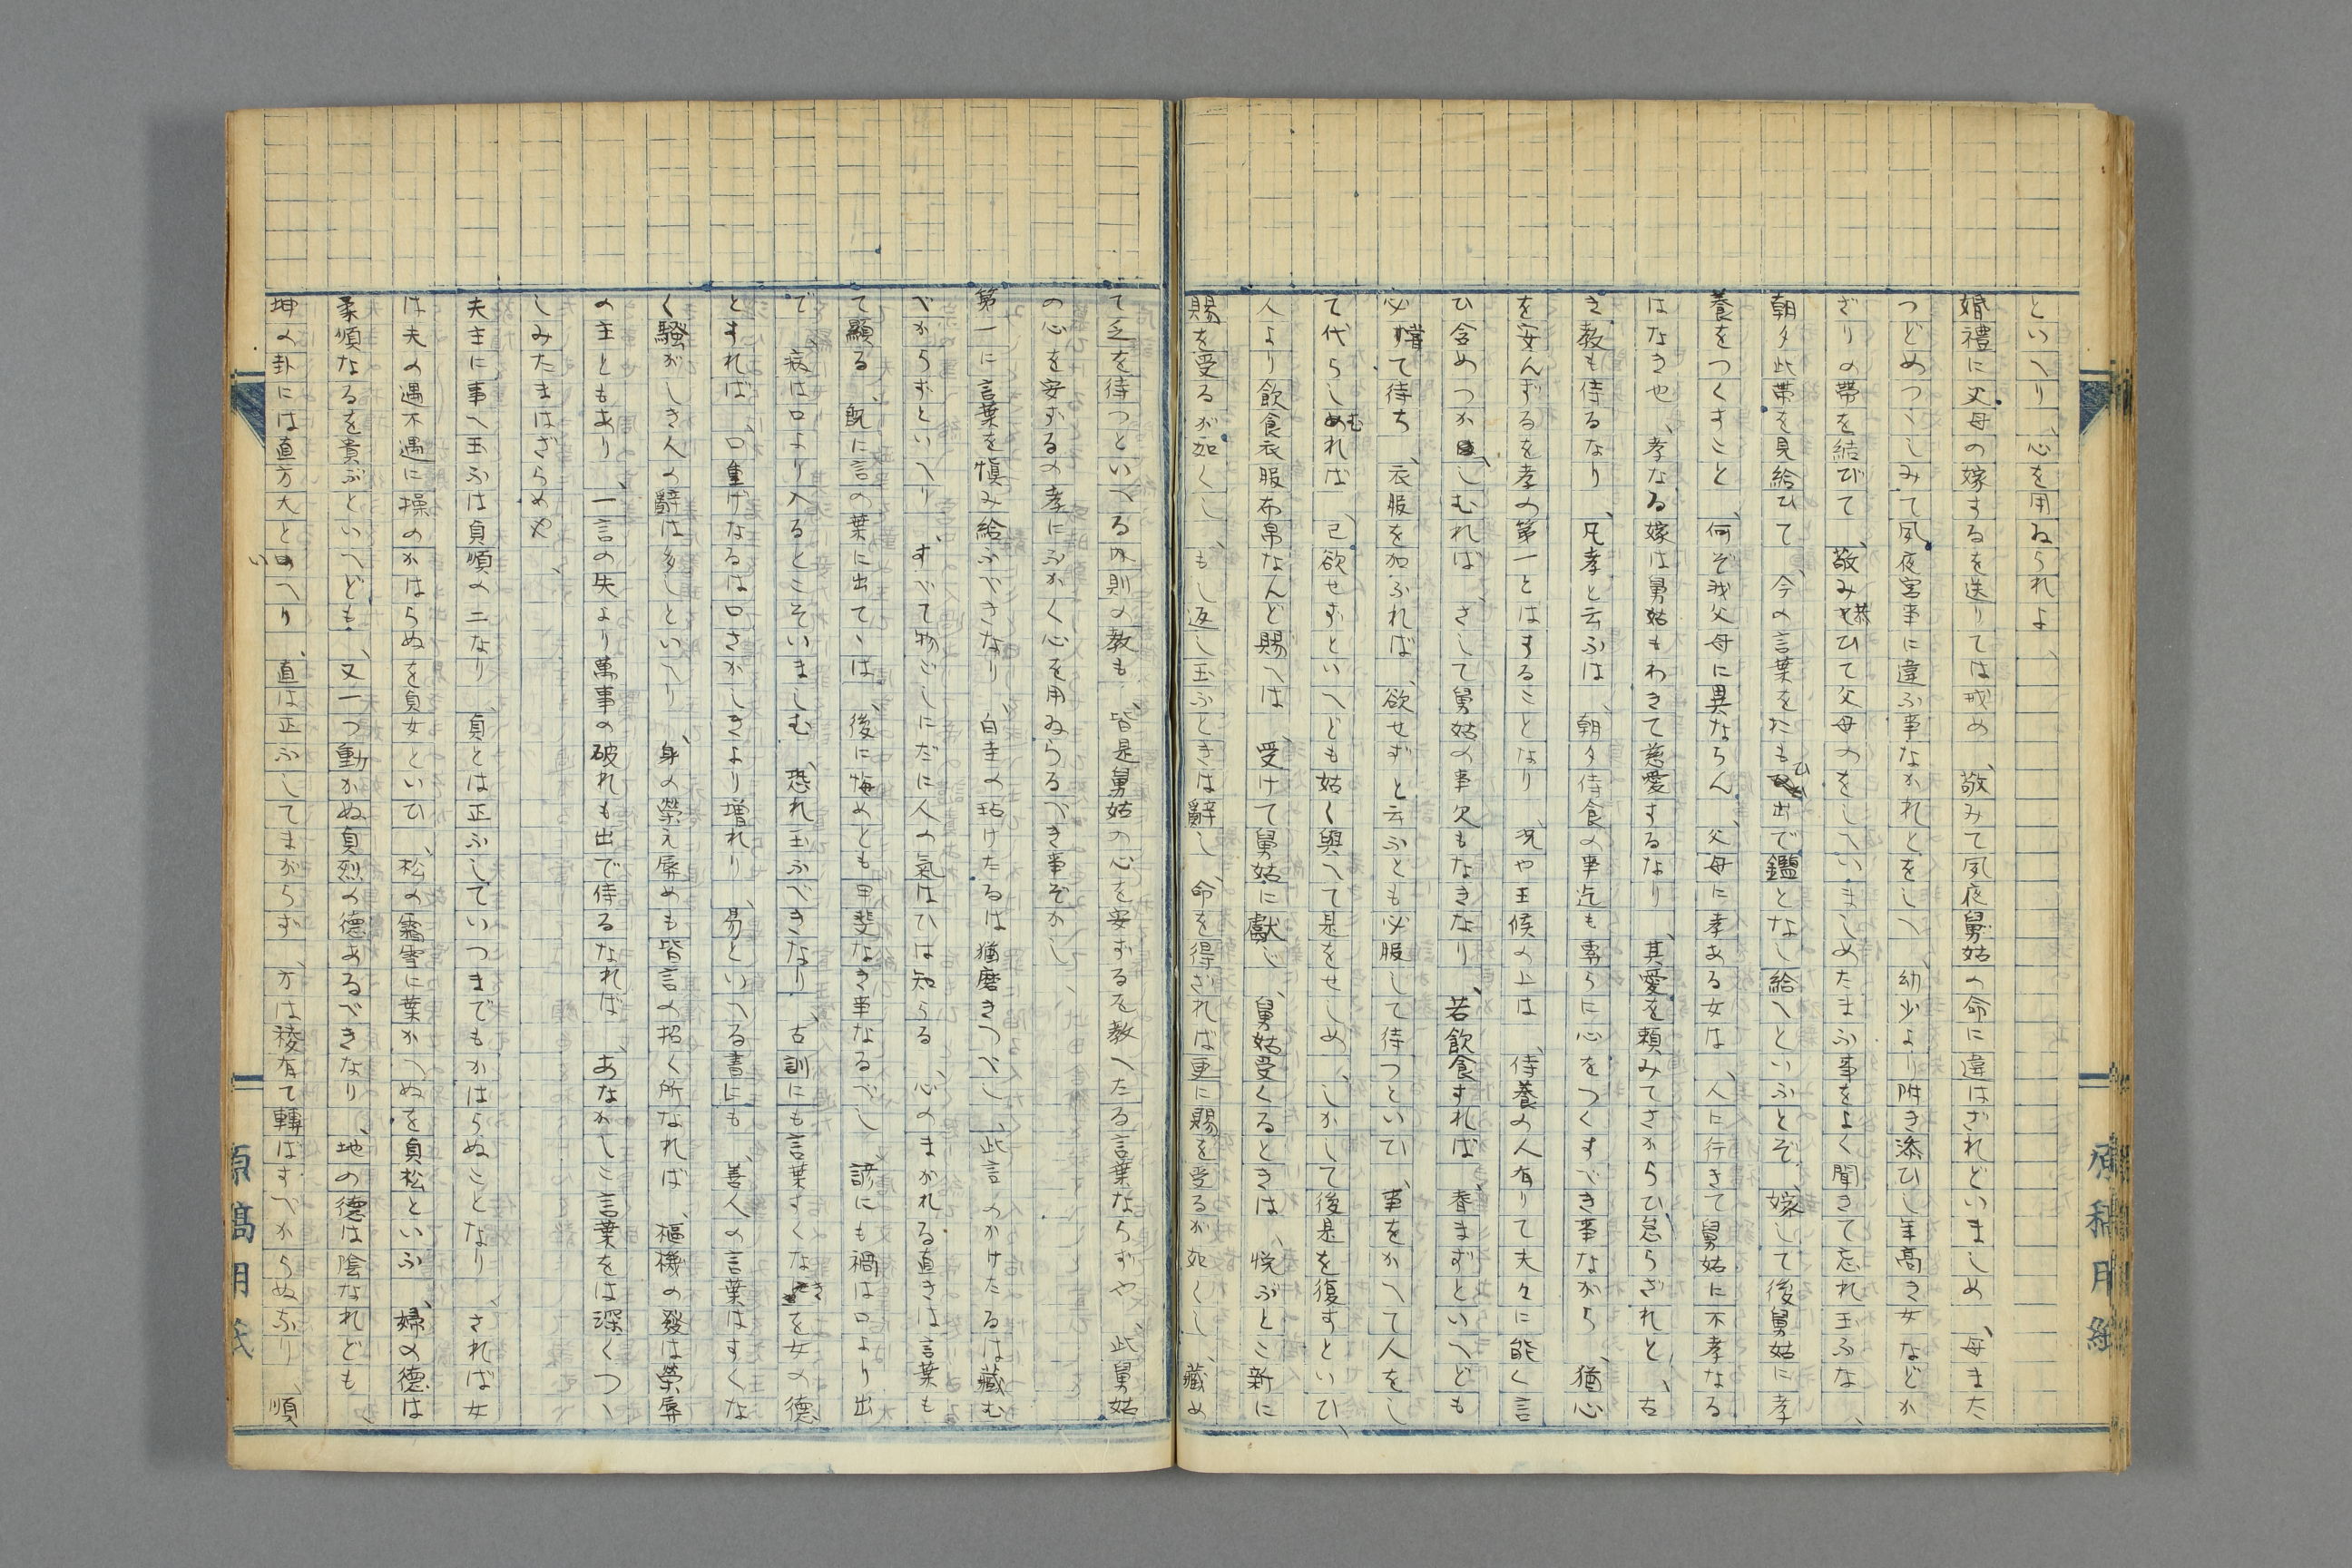 といへり、心を用ゐられよ、
婚禮に父母の嫁するを送りては戒め、敬みて夙夜舅姑の命に違はざれどいましめ、母また
つどめつゝしみて夙夜宮事に違ふ事なかれとをしへ、幼少より附き添ひし年高き女などか
ざりの帶を結びて、敬み恭ひて父母のをしへいましめたまふ事をよく聞きて忘れ玉ふな、
朝夕此帶を見給ひて、今の言葉をたもひ出で鑑となし給へといふとぞ、嫁して後舅姑に孝
養をつくすこと、何ぞ我父母に異ならん、父母に孝ある女は、人に行きて舅姑に不孝なる
はなき也、孝なる嫁は舅姑もわきて慈愛するなり、其愛を頼みてさからひ怠らざれと、古
き教も侍るなり、凡孝と云ふは、朝夕侍食の事迄も專らに心をつくすべき事ながら、猶心
を安んずるを孝の第一とはすることなり、况や王候の上は、侍養の人有りて夫々に能く言
ひ含めつかへしむれば、さして舅姑の事欠もなきなり、若飲食すれば、嗜まずといへども
必嘗て待ち、衣服を加ふれば、欲せずと云ふとも必服して待つといひ、事をかへて人をし
て代らしむれば、己欲せずといへども姑く與へて是をせしめ、しかして後是を復すといひ、
人より飲食衣服布帛なんど賜へは、受けて舅姑に獻じ、舅姑受くるときは、悦ぶとこ新に
賜を受るが如くし、もし返し玉ふときは辭し、命を得ざれば更に賜を受るが如くし、藏め
て乏を待つといへる内則の教も、皆是舅姑の心を安ずるを教へたる言葉ならずや、此舅姑
の心を安ずるの孝にふかく心を用ゐらるべき事ぞかし、
第一に言葉を愼み給ふべきなり、白圭の玷けたるは猶磨きつべし、此言のかけたるは藏む
べからずといへり、すべて物ごしにだに人の氣はひは知らる、心のまがれる直きは言葉も
て顯る、既に言の葉に出てゝは、後に悔めとも甲斐なき事なるべし、諺にも禍は口より出
で、病は口より入るとこそいましむ、恐れ玉ふべきなり、古訓にも言葉すくなきを女の德
とすれば、口重げなるは口さかしきより增れり、易といへる書にも、善人の言葉はすくな
く騷がしき人の辭は多しといへり、身の榮え辱めも皆言の招く所なれば、樞機の發は榮辱
の主ともあり、一言の失より萬事の破れも出で侍るなれば、あなかしこ言葉をは深くつゝ
しみたまはざらめや、
夫主に事へ玉ふは貞順の二なり、貞とは正ふしていつまでもかはらぬことなり、されば女
は夫の遇不遇に操のかはらぬを貞女といひ、松の霜雪に葉かへぬを貞松といふ、婦の德は
柔順なるを貴ぶといへども、又一つ動かぬ貞烈の德あるべきなり、地の德は陰なれども、
坤の卦には直方大といへり、直は正ふしてまがらず、方は稜有て轉ばすべからぬなり、順
原稿用紙